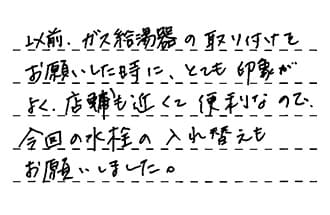 以前、ガス給湯器の取り付けを
お願いした時に、とても印象が
よく、店舗も近くて便利なので、
今回の水栓の入れ替えも
お願いしました。